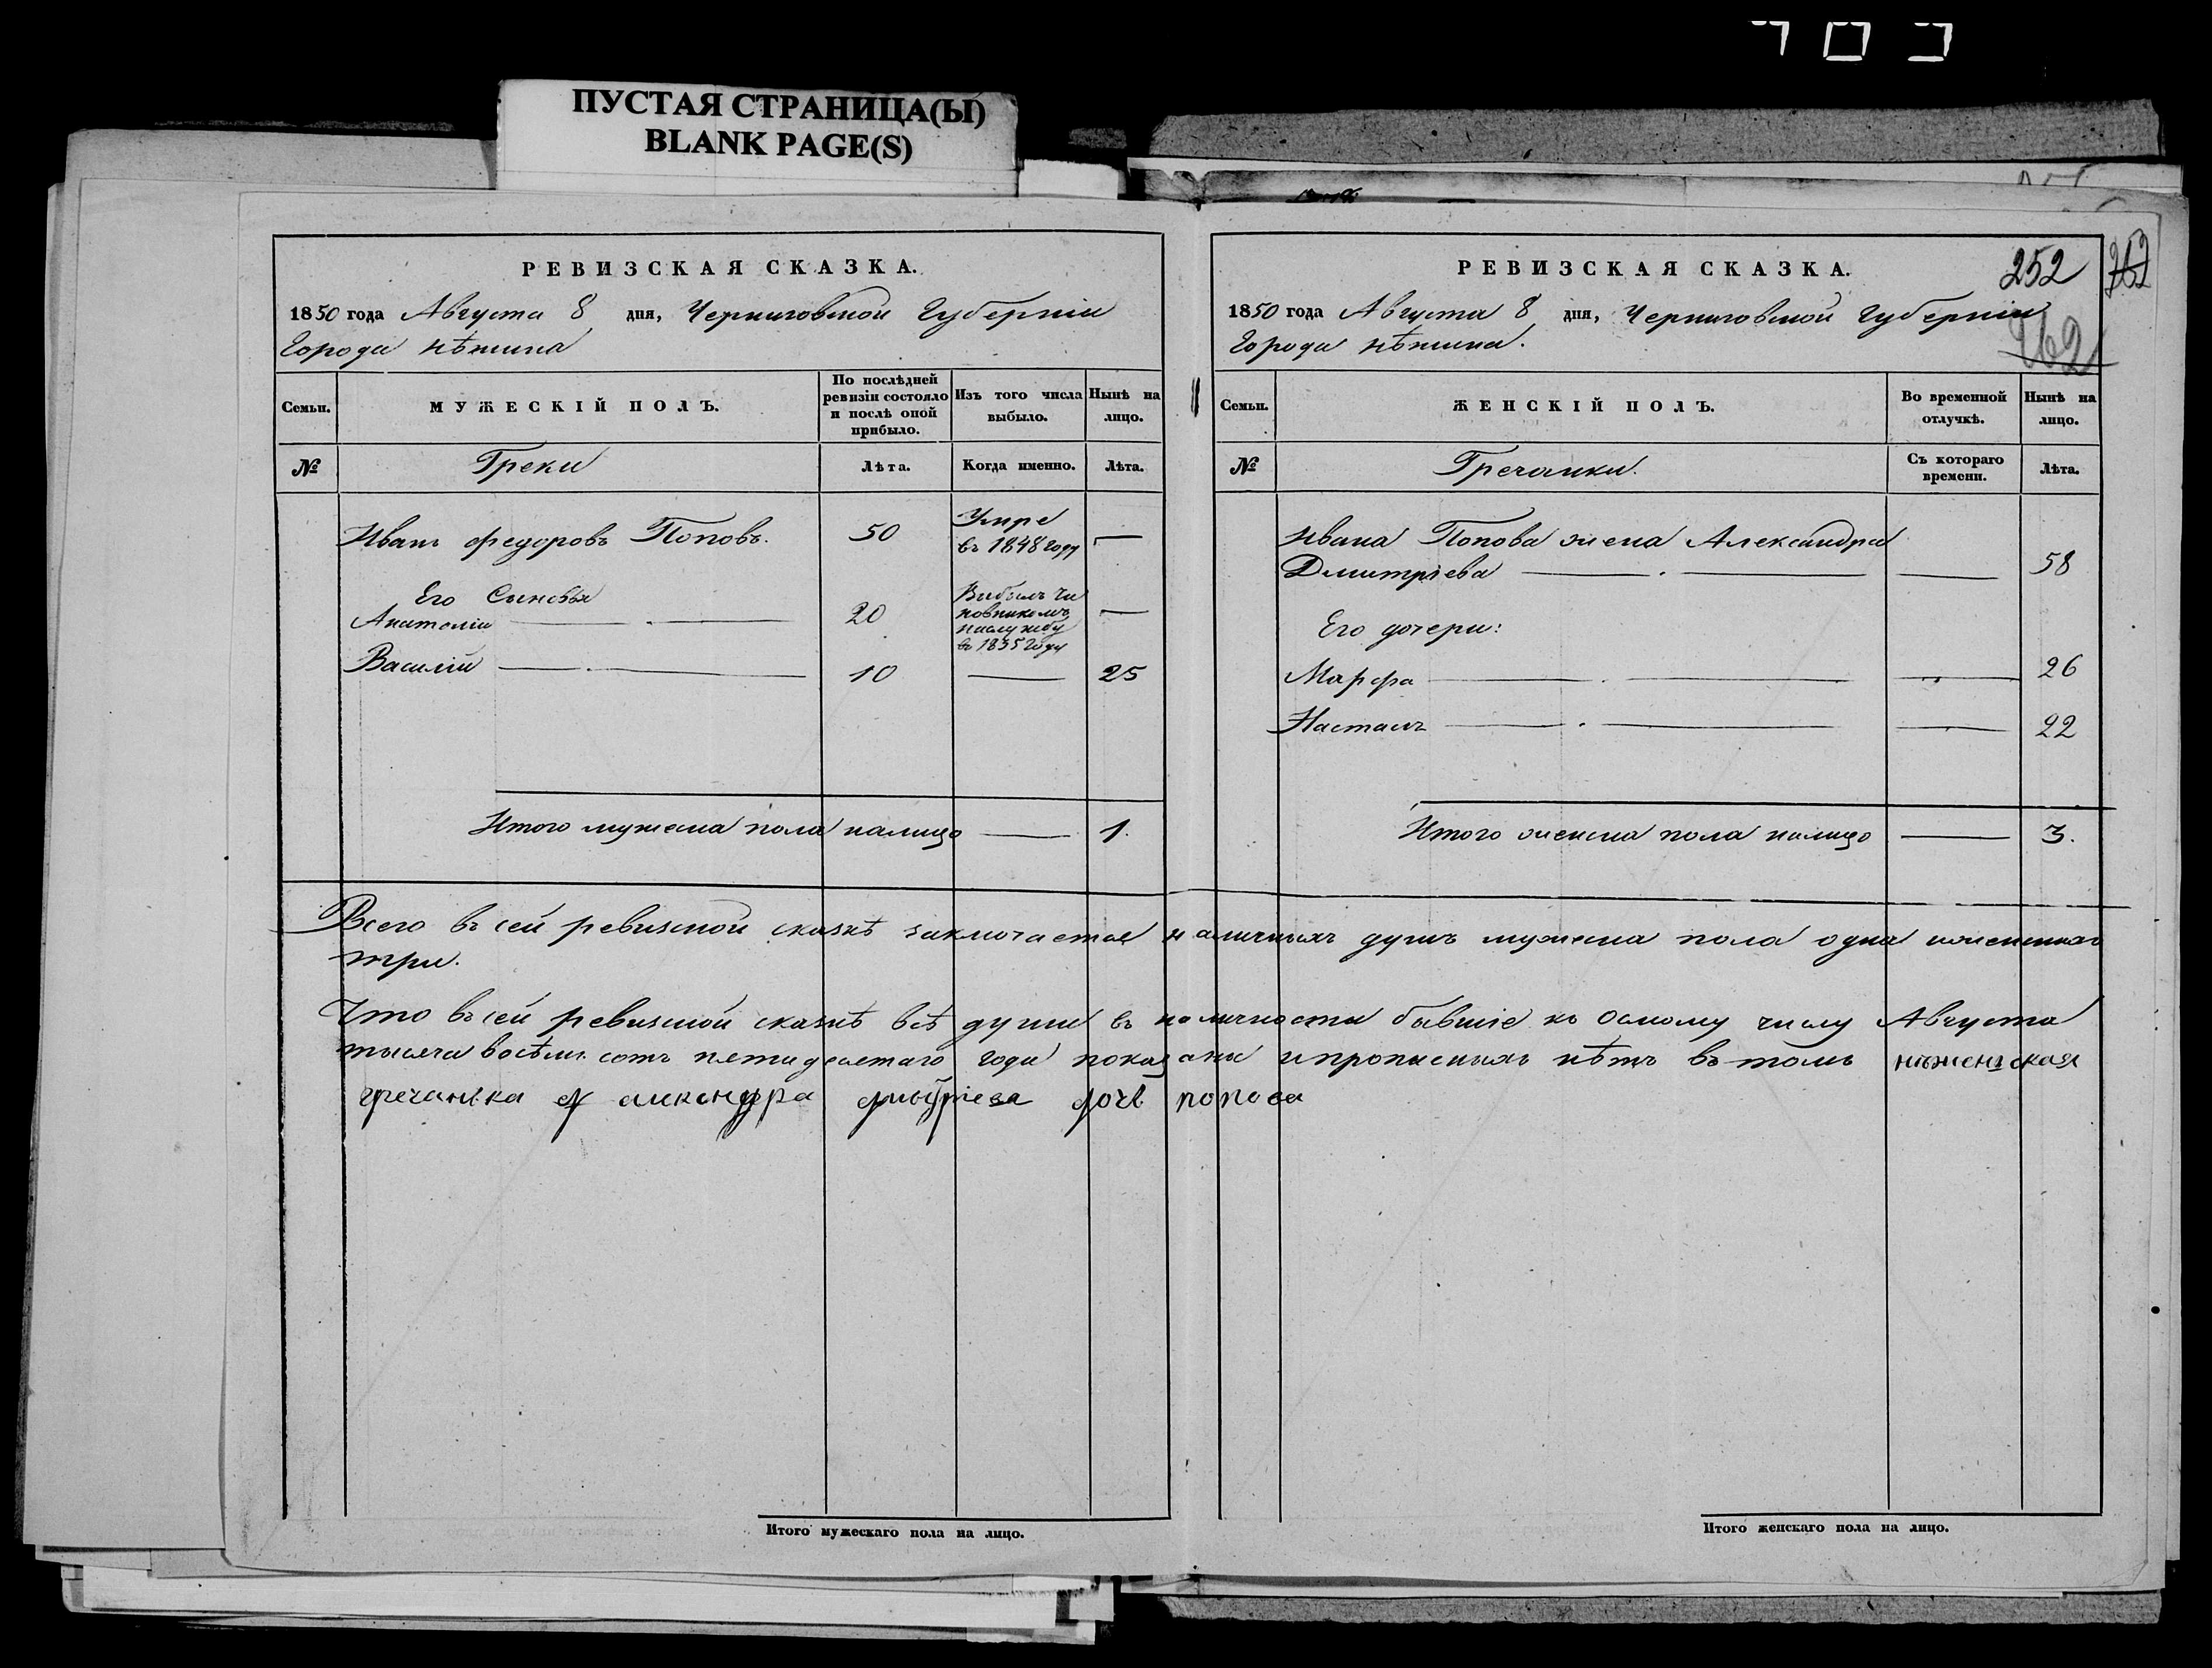 ПУСТАЯ СТРАНИЦА(Ы)
BLANK PAGE(S)
РЕВИЗСКАЯ СКАЗКА.
1850 года Августа 8 дня, Черниговской Губерніи
Города Нѣжина
Семьи.
МУЖЕСКІЙ ПОЛЪ.
По послѣдней ревизіи состояло и послѣ оной прибыло.
Изъ того числа выбыло.
Нынѣ на лицо.
№
Греки
Лѣта.
Когда именно.
Лѣта.
Иванъ Федоровъ Поповъ. 50 Умре въ 1848 году —
Его Сыновья
Анатолій 20 Выбылъ чиновникомъ наслужбу въ 1835 году —
Василій 10 — 25
Итого мужеска пола налицо — 1.
РЕВИЗСКАЯ СКАЗКА.
252
1850 года Августа 8 дня, Черниговской Губерніи
Города Нѣжина.
262
Семьи.
ЖЕНСКІЙ ПОЛЪ.
Во временной отлучкѣ.
Нынѣ на лицо.
№
Гречанки.
Съ котораго времени.
Лѣта.
Ивана Попова жена Александра
Дмитріева — 58
Его дочери:
Марфа — 26
Настасъ — 22
Итого женска пола налицо — 3.
Всего въ сей ревизской сказкѣ заключается наличныхъ душъ мужеска пола одна
три.
Что въ сей ревизской сказкѣ всѣ души въ наличности бывшіе къ Осмому числу Августа
тысяча восѣмь сотъ пятидесятаго года показаны ипрописныхъ нѣтъ въ томъ нѣженская
гречанка александра дочь попова
Итого мужескаго пола на лицо.
Итого женскаго пола на лицо.